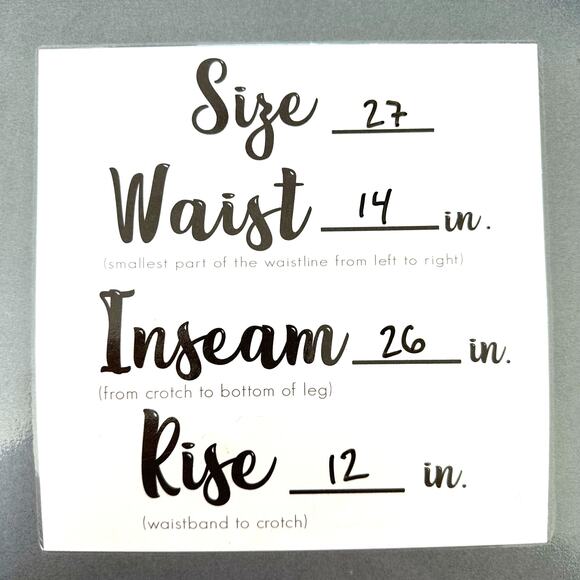 Size 27
Waist 14 in.
(smallest part of the waistline from left to right)
Inseam 26 in.
(from crotch to bottom of leg)
Rise 12 in.
(waistband to crotch)